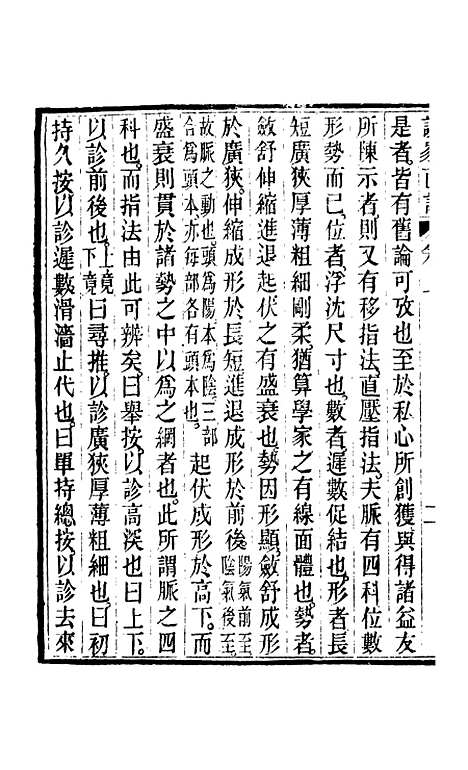 二
是者皆有舊論可攷也至於私心所創獲與得諸益友
所陳示者則又有移指法直壓指法夫脈有四科位數
形勢而已位者浮沈尺寸也數者遲數促結也形者長
短廣狹厚薄粗細剛柔猶算學家之有線面體也勢者
斂舒伸縮進退起伏之有盛衰也勢因形顯斂舒成形
於廣狹伸縮成形於長短進退成形於前後陽氣前至陰氣後至
故脈之動也頭爲陽本爲陰三部合爲頭本亦每部各有頭本也起伏成形於高下而
盛衰則貫於諸勢之中以爲之網者也此所謂脈之四
科也而指法由此可辨矣曰舉按以診高深也曰上下
以診前後也上竟下竟曰尋推以診廣狹厚薄粗細也曰初
持久按以診遲數滑濇止代也曰單持總按以診去來